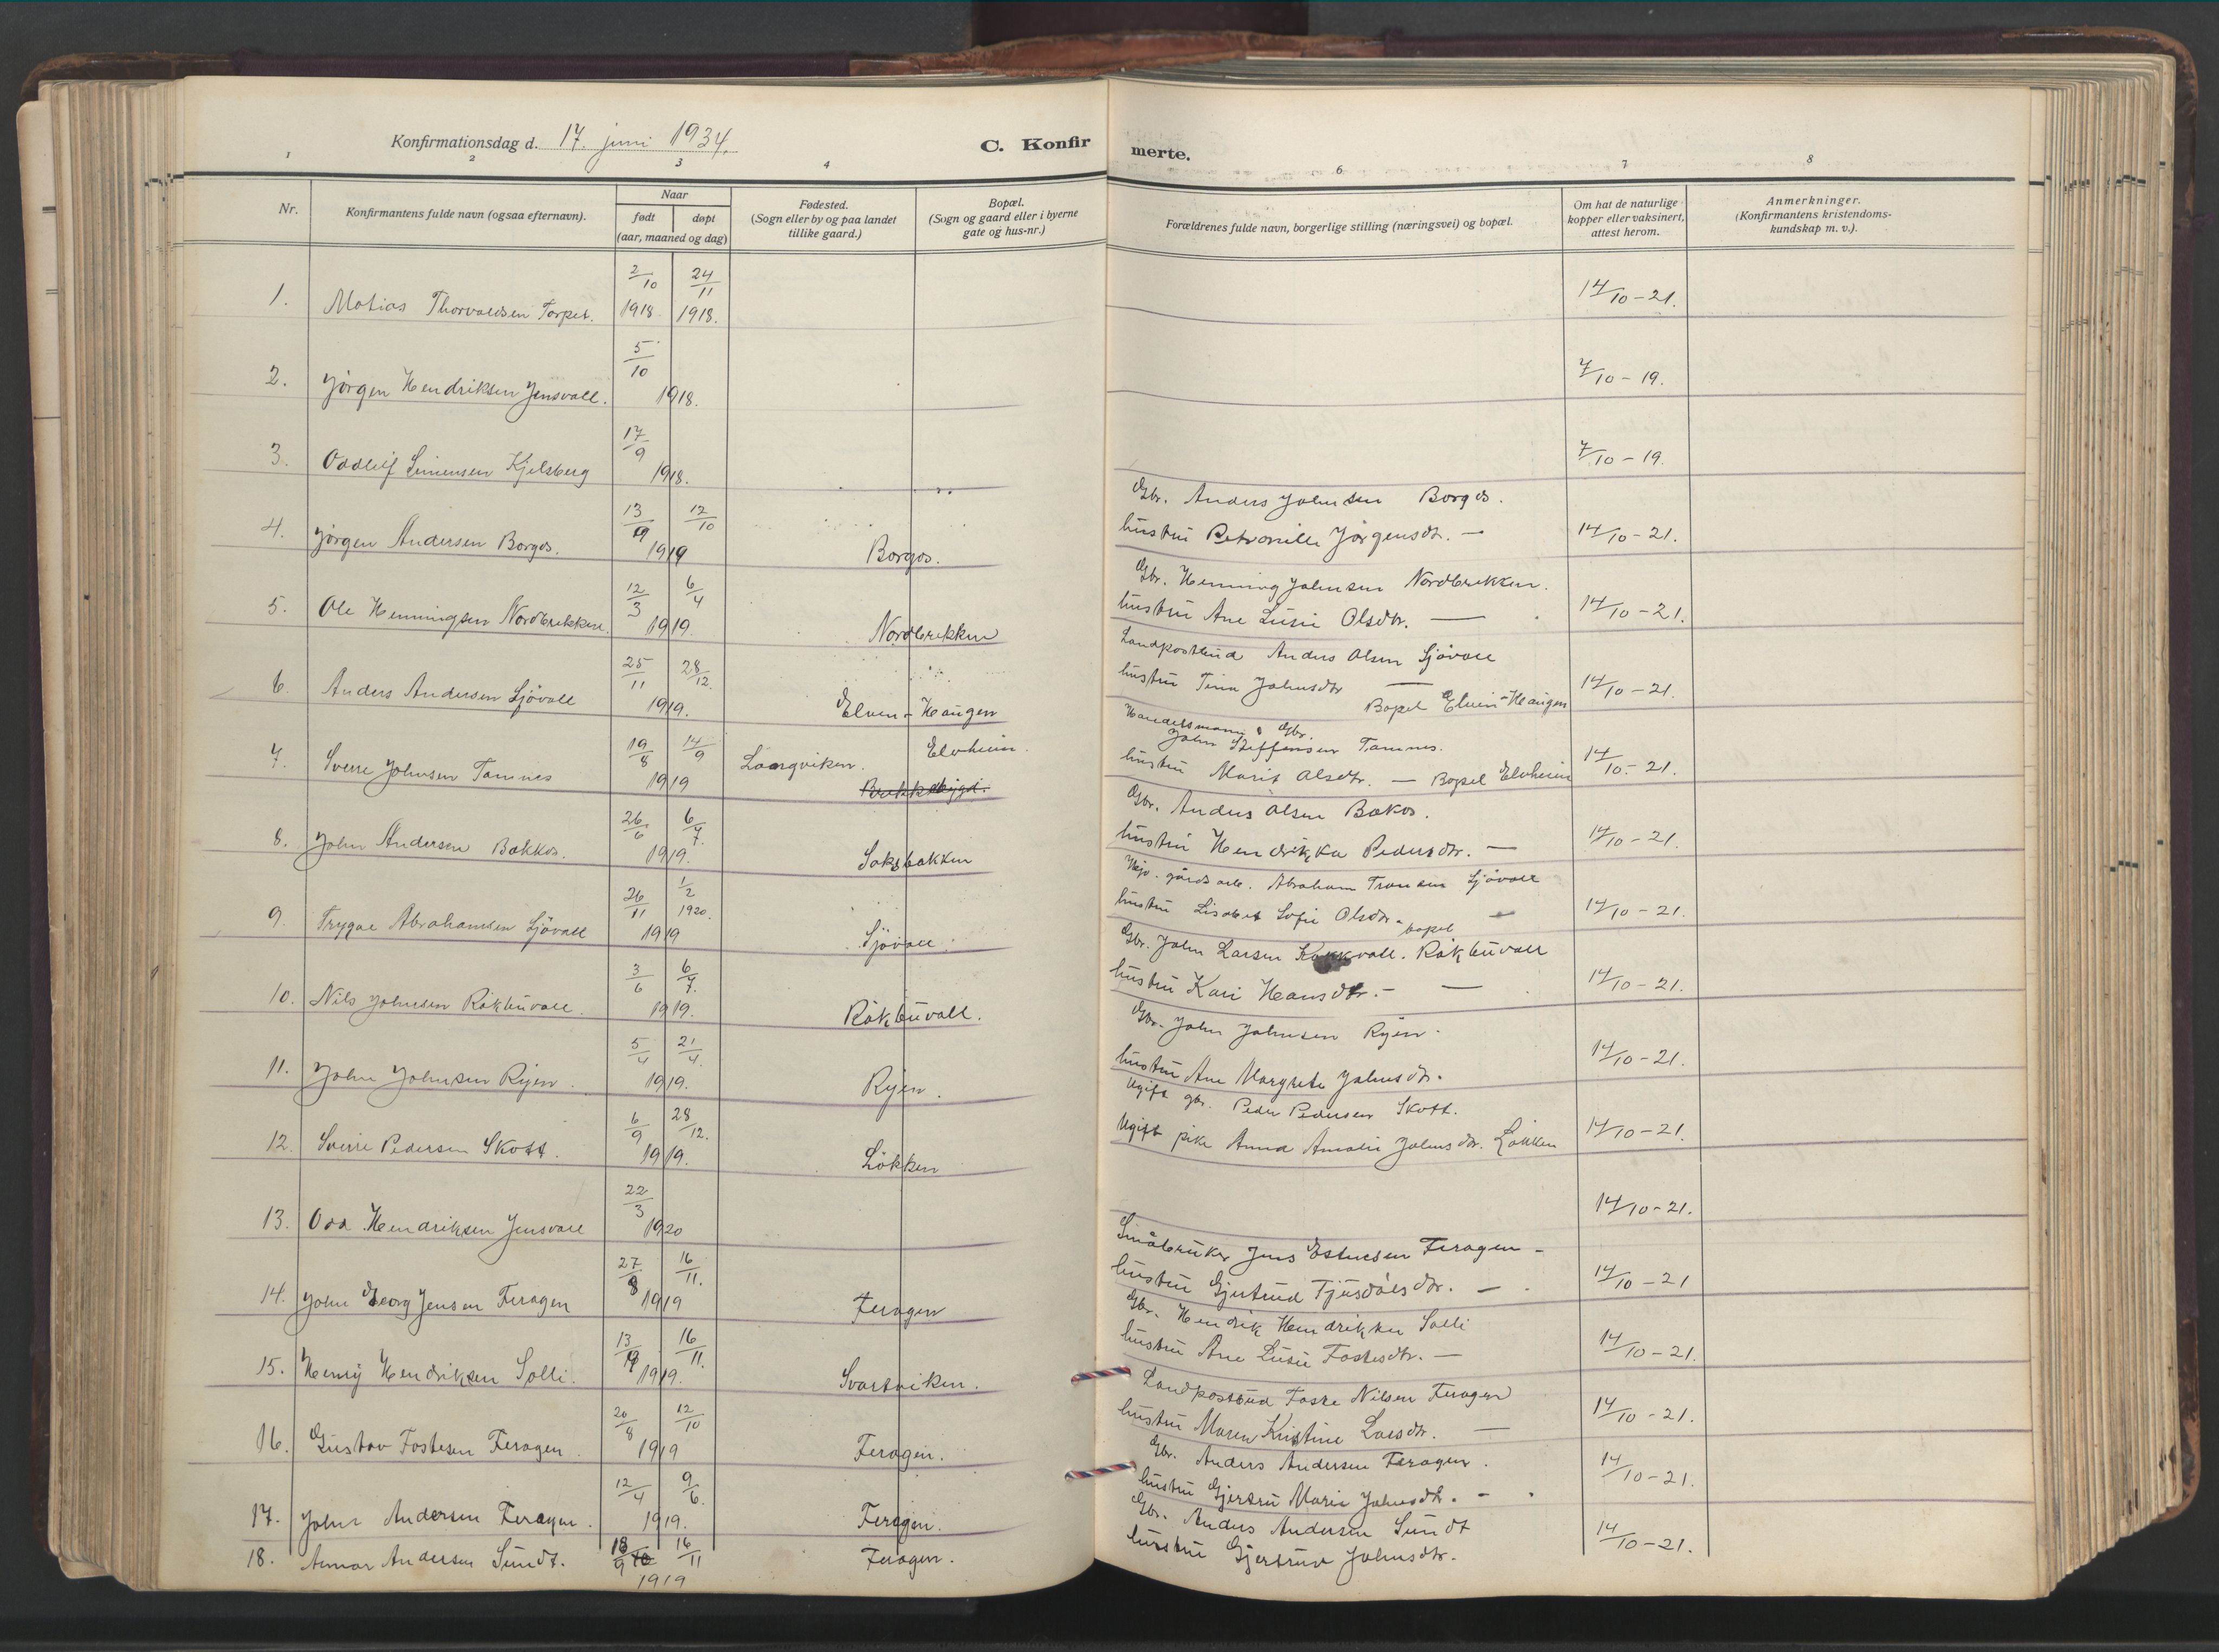 Konfirmationsdag d. 17. juni 1934.
C. Konfirmerte.
1 2 3 4 6 7 8
Nr.
Konfirmantens fulde navn (ogsaa efternavn).
Naar
født
døpt
(aar, maaned og dag)
Fødested.
(Sogn eller by og paa landet
tillike gaard.)
Bopæl.
(Sogn og gaard eller i byerne
gate og hus-nr.)
Forældrenes fulde navn, borgerlige stilling (næringsvei) og bopæl.
Om hat de naturlige
kopper eller vaksinert,
attest herom.
Anmerkninger.
(Konfirmantens kristendoms-
kundskap m. v.).
2/10 24/11
1. Matias Thorvaldsen Torpet. 1918. 1918. 14/10-21.
5/10
2. Jörgen Hendriksen Jensvall. 1918. 7/10-19.
17/9
3. Oddleif Simensen Kjelsberg 1918. 7/10-19.
13/9 12/10 Gbr. Anders Johnsen Borgos.
4. Jörgen Andersen Borgos. 1919 Borgos. hustru Petronille Jörgensdtr. — 14/10-21.
12/3 6/4 Gbr. Henning Johnsen Nordbrekken.
5. Ole Henningsen Nordbrekken. 1919. Nordbrekken hustru Ane Lusie Olsdtr. — 14/10-21.
25/11 28/12. Landpostbud Anders Olsen Sjövall
6. Anders Andersen Sjövold 1919. Elven-Haugen hustru Tina Johnsdtr — Bopel Elven-Haugen 14/10-21.
19/8 14/9 Elvheim. Handelsmann & Gbr.
John Steffensen Tamnes.
7. Sverre Johnsen Tamnes 1919 Langviken. Brekkebygd. hustru Marit Olsdtr. — Bopel Elvheim 14/10-21.
26/6 6/7. Gbr. Anders Olsen Bakos.
8. John Andersen Bakkos. 1919. Saksbakken hustru Hendrikka Pedersdtr. — 14/10-21.
26/11 1/2 1920. gårdsarb. Abraham Tronsen Sjövall
9. Trygve Abrahamsen Sjövall 1919 Sjövall. hustru Lisabet Sofie Olsdtr. — 14/10-21.
3/6 6/7. Gbr. John Larsen Kokkvoll. bopel Råkbuvall
10. Nils Johnsen Råkbuvall. 1919. Råkbuvall. hustru Kari Hansdtr. — 14/10-21.
5/4 21/4. Gbr. John Johnsen Ryen.
11. John Johnsen Ryen. 1919. Ryen. hustru Ane Margrete Johnsdtr. 14/10-21.
6/9 28/12. Ugift gbr. Peder Pedersen Skott.
12. Sverre Pedersen Skott. 1919. Lökken Ugift pike Anna Amalie Johnsdtr. Lökken 14/10-21.
22/3
13. Odd Hendriksen Jensvall 1920 14/10-21.
27/8 16/11. Småbruker Jens Estensen Feragen —
14. John Georg Jensen Feragen 1919 Feragen hustru Gjertrud Tjösdålsdtr. — 14/10-21
13/9 16/11. Gbr. Hendrik Hendrikken Solli
15. Henry Hendriksen Solli. 1919. Svartviken. hustru Ane Lusie Fostesdtr. — 14/10-21.
20/8 12/10 Landpostbud Foste Nilsen Feragen
16. Gustav Fostesen Feragen. 1919 Feragen. hustru Maren Kristine Larsdtr. — 14/10-21.
12/4 9/6. Gbr. Anders Andersen Feragen.
17. John Andersen Feragen. 1919. Feragen. hustru Gjertru Marie Johnsdtr. — 14/10-21.
18/9 16/11 Gbr. Anders Andersen Sundt
18. Annar Andersen Sundt. 1919 Feragen. hustru Gjertrud Johnsdtr. 14/10-21.